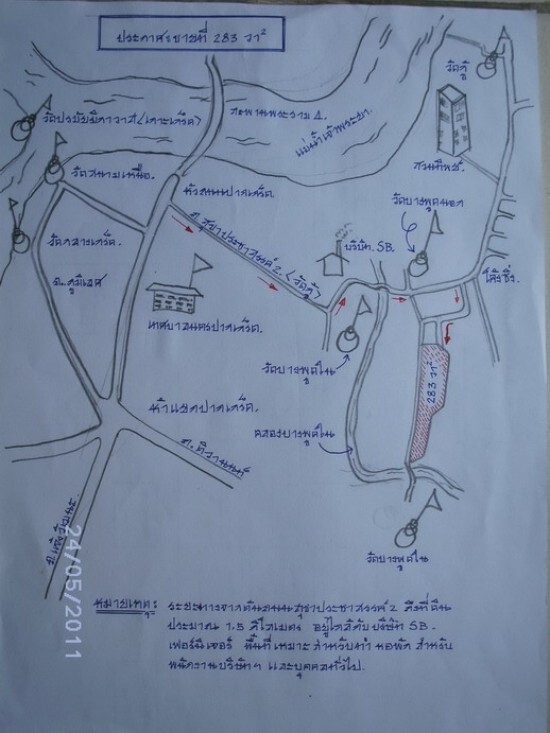 ประกาศขายที่ 283 วา²
วัดกู้
วัดปรมัยยิกาวาส (เกาะเกร็ด)
สะพานพระราม 4.
แม่น้ำเจ้าพระยา
สวนทิพย์.
วัดสนามเหนือ.
หัวถนนปากเกร็ด.
วัดบางพูดนอก
วัดกลางเกร็ด.
ถ.สุขาประชาสรรค์ 2. (วัดกู้)
บริษัท. SB.
โค้งซิ่ง.
ถ.ภูมิเวท
เทศบาลนครปากเกร็ด.
วัดบางพูดใน
283 วา²
ห้าแยกปากเกร็ด.
คลองบางพูดใน
ถ.ติวานนท์
ถ.แจ้งวัฒนะ
วัดบางพูดใน
24/05/2011
หมายเหตุ: ระยะทางจากต้นถนนสุขาประชาสรรค์ 2 ถึงที่ดิน
ประมาณ 1.5 กิโลเมตร อยู่ใกล้กับบริษัท SB.
เฟอร์นิเจอร์ พื้นที่เหมาะสำหรับทำ หอพัก สำหรับ
พนักงานบริษัทฯ และบุคคลทั่วไป.